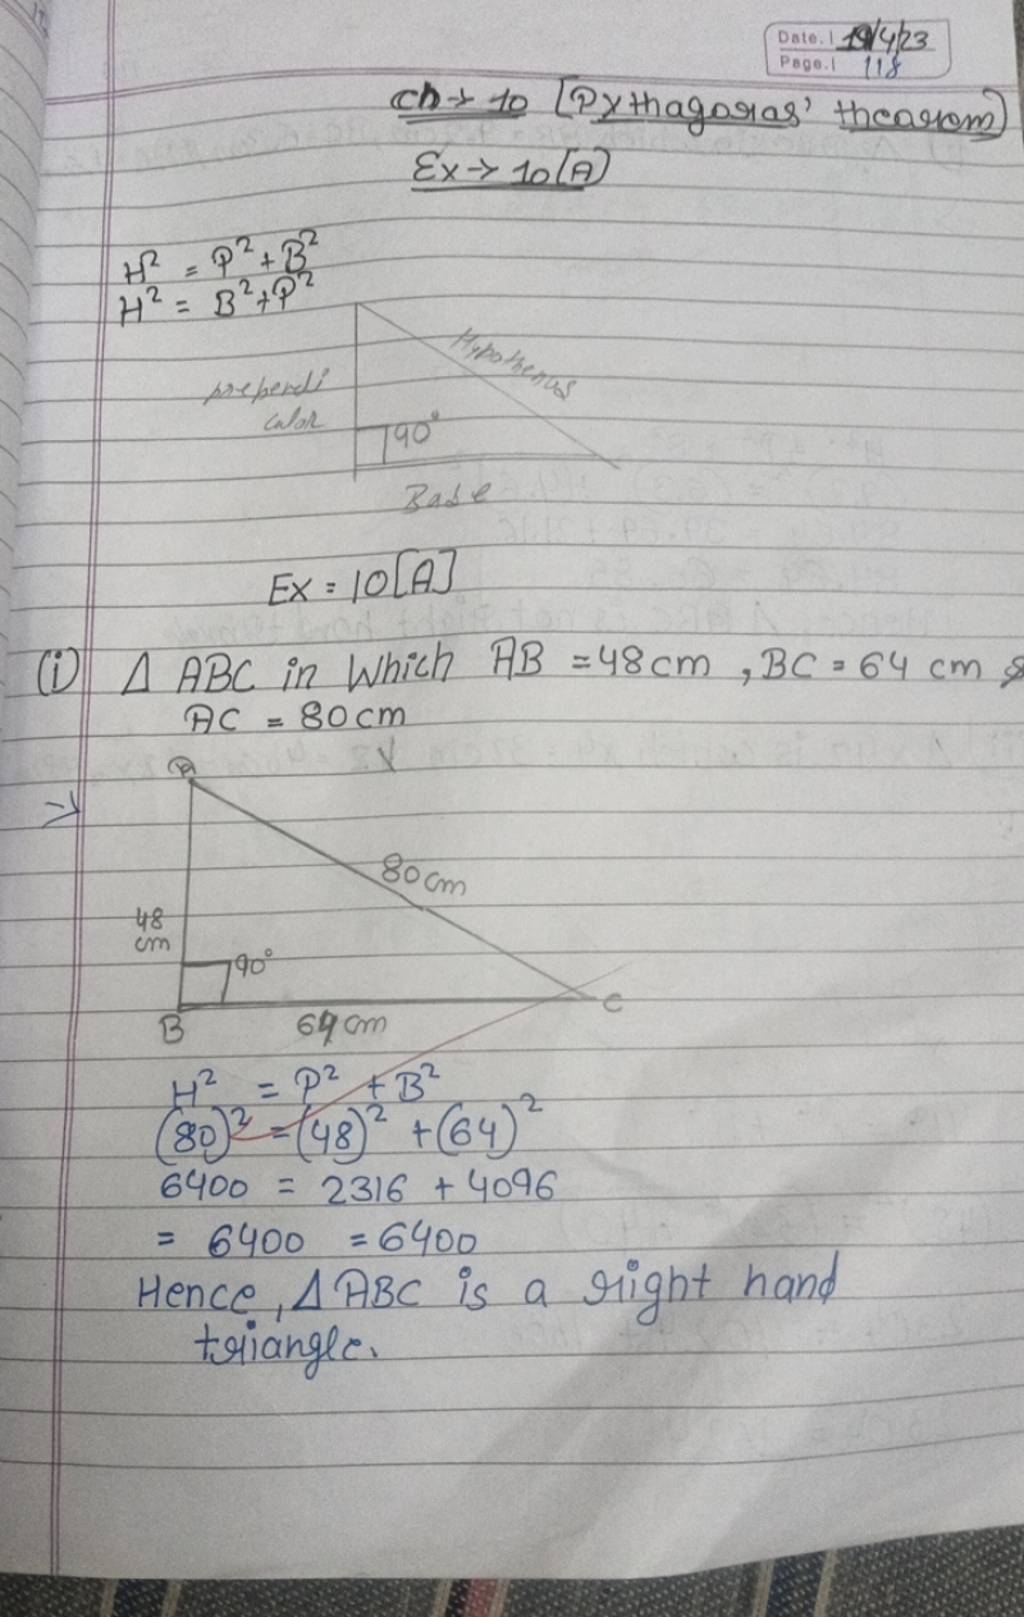 Date. 19/4/23
Page. 118
Ch → 10 [Pythagoras' thearom]
Ex → 10[A]
H² = P² + B²
H² = B² + P²
Hypothenus
prependi
culor
90°
Base
Ex = 10[A]
(i) Δ ABC in Which AB = 48cm, BC = 64 cm &
AC = 80cm
A
80cm
48
cm
90°
B
64cm
C
H² = P² + B²
(80)² = (48)² + (64)²
6400 = 2316 + 4096
= 6400 = 6400
Hence, Δ ABC is a right hand
triangle.